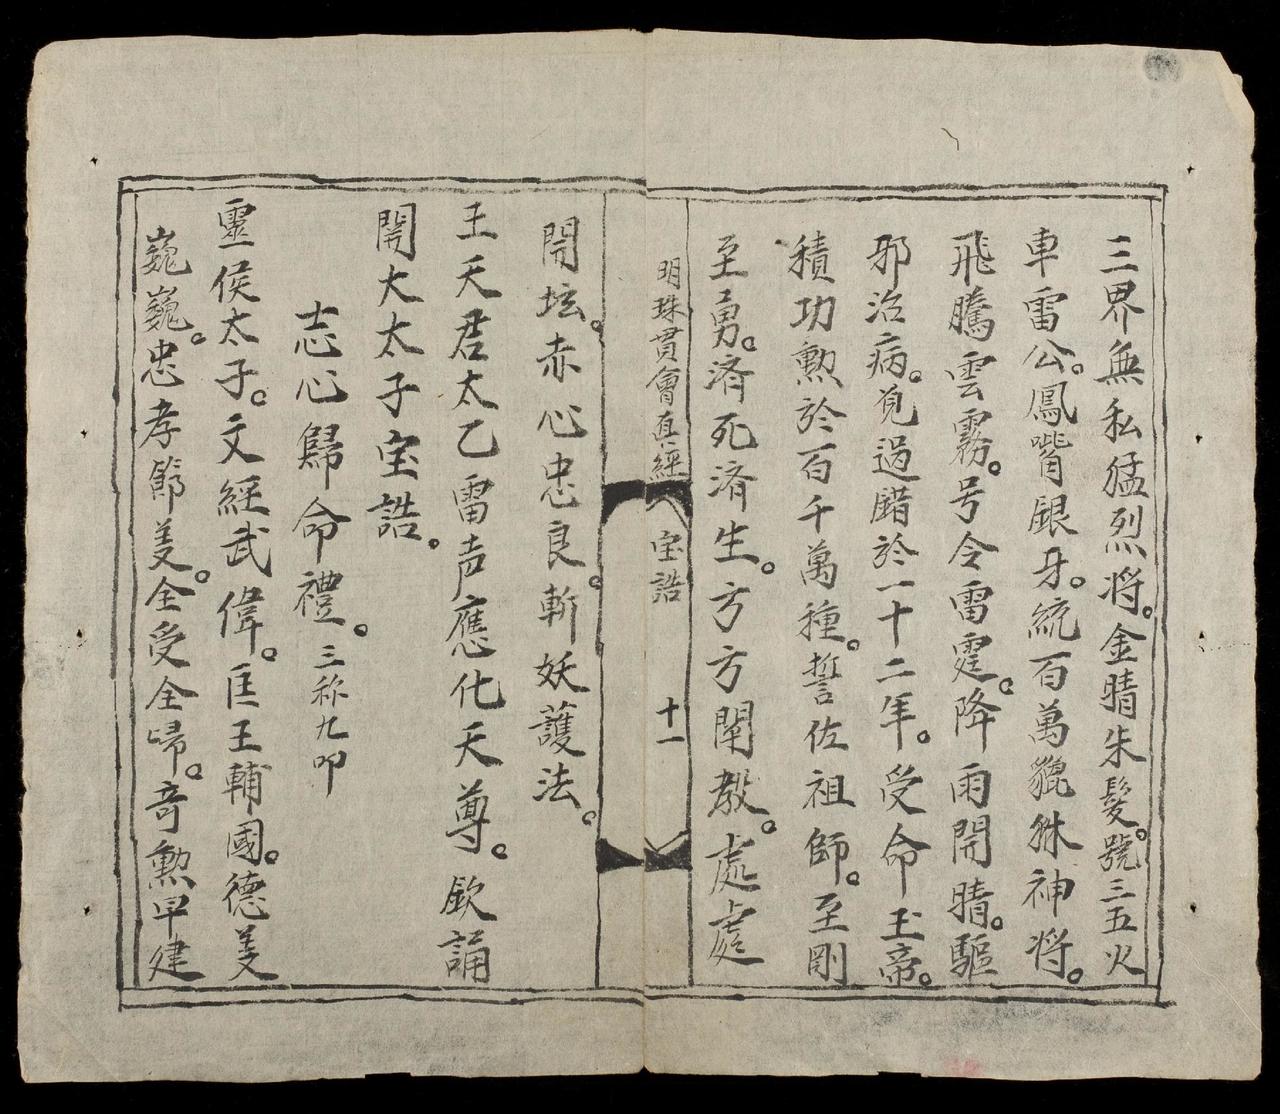 三界無私猛烈将。金睛朱髮。號三五火
車雷公。鳳嘴銀牙。統百萬貔貅神将。
飛騰雲霧。号令雷霆。降雨開晴。驅
邪治病。覌過錯於一十二年。受命玉帝。
積功勲於百千萬種。誓佐祖師。至剛
至勇。済死済生。方方闡教。處處
明珠貫會真經 宝誥 十一
開坛。赤心忠良。斬妖護法。
王天君太乙雷声應化天尊。欽誦
開大太子宝誥。
志心歸命禮。三称九叩
靈侯太子。文經武偉。匡王輔國。德美
巍巍。忠孝節義。全受全㱕。竒勲早建